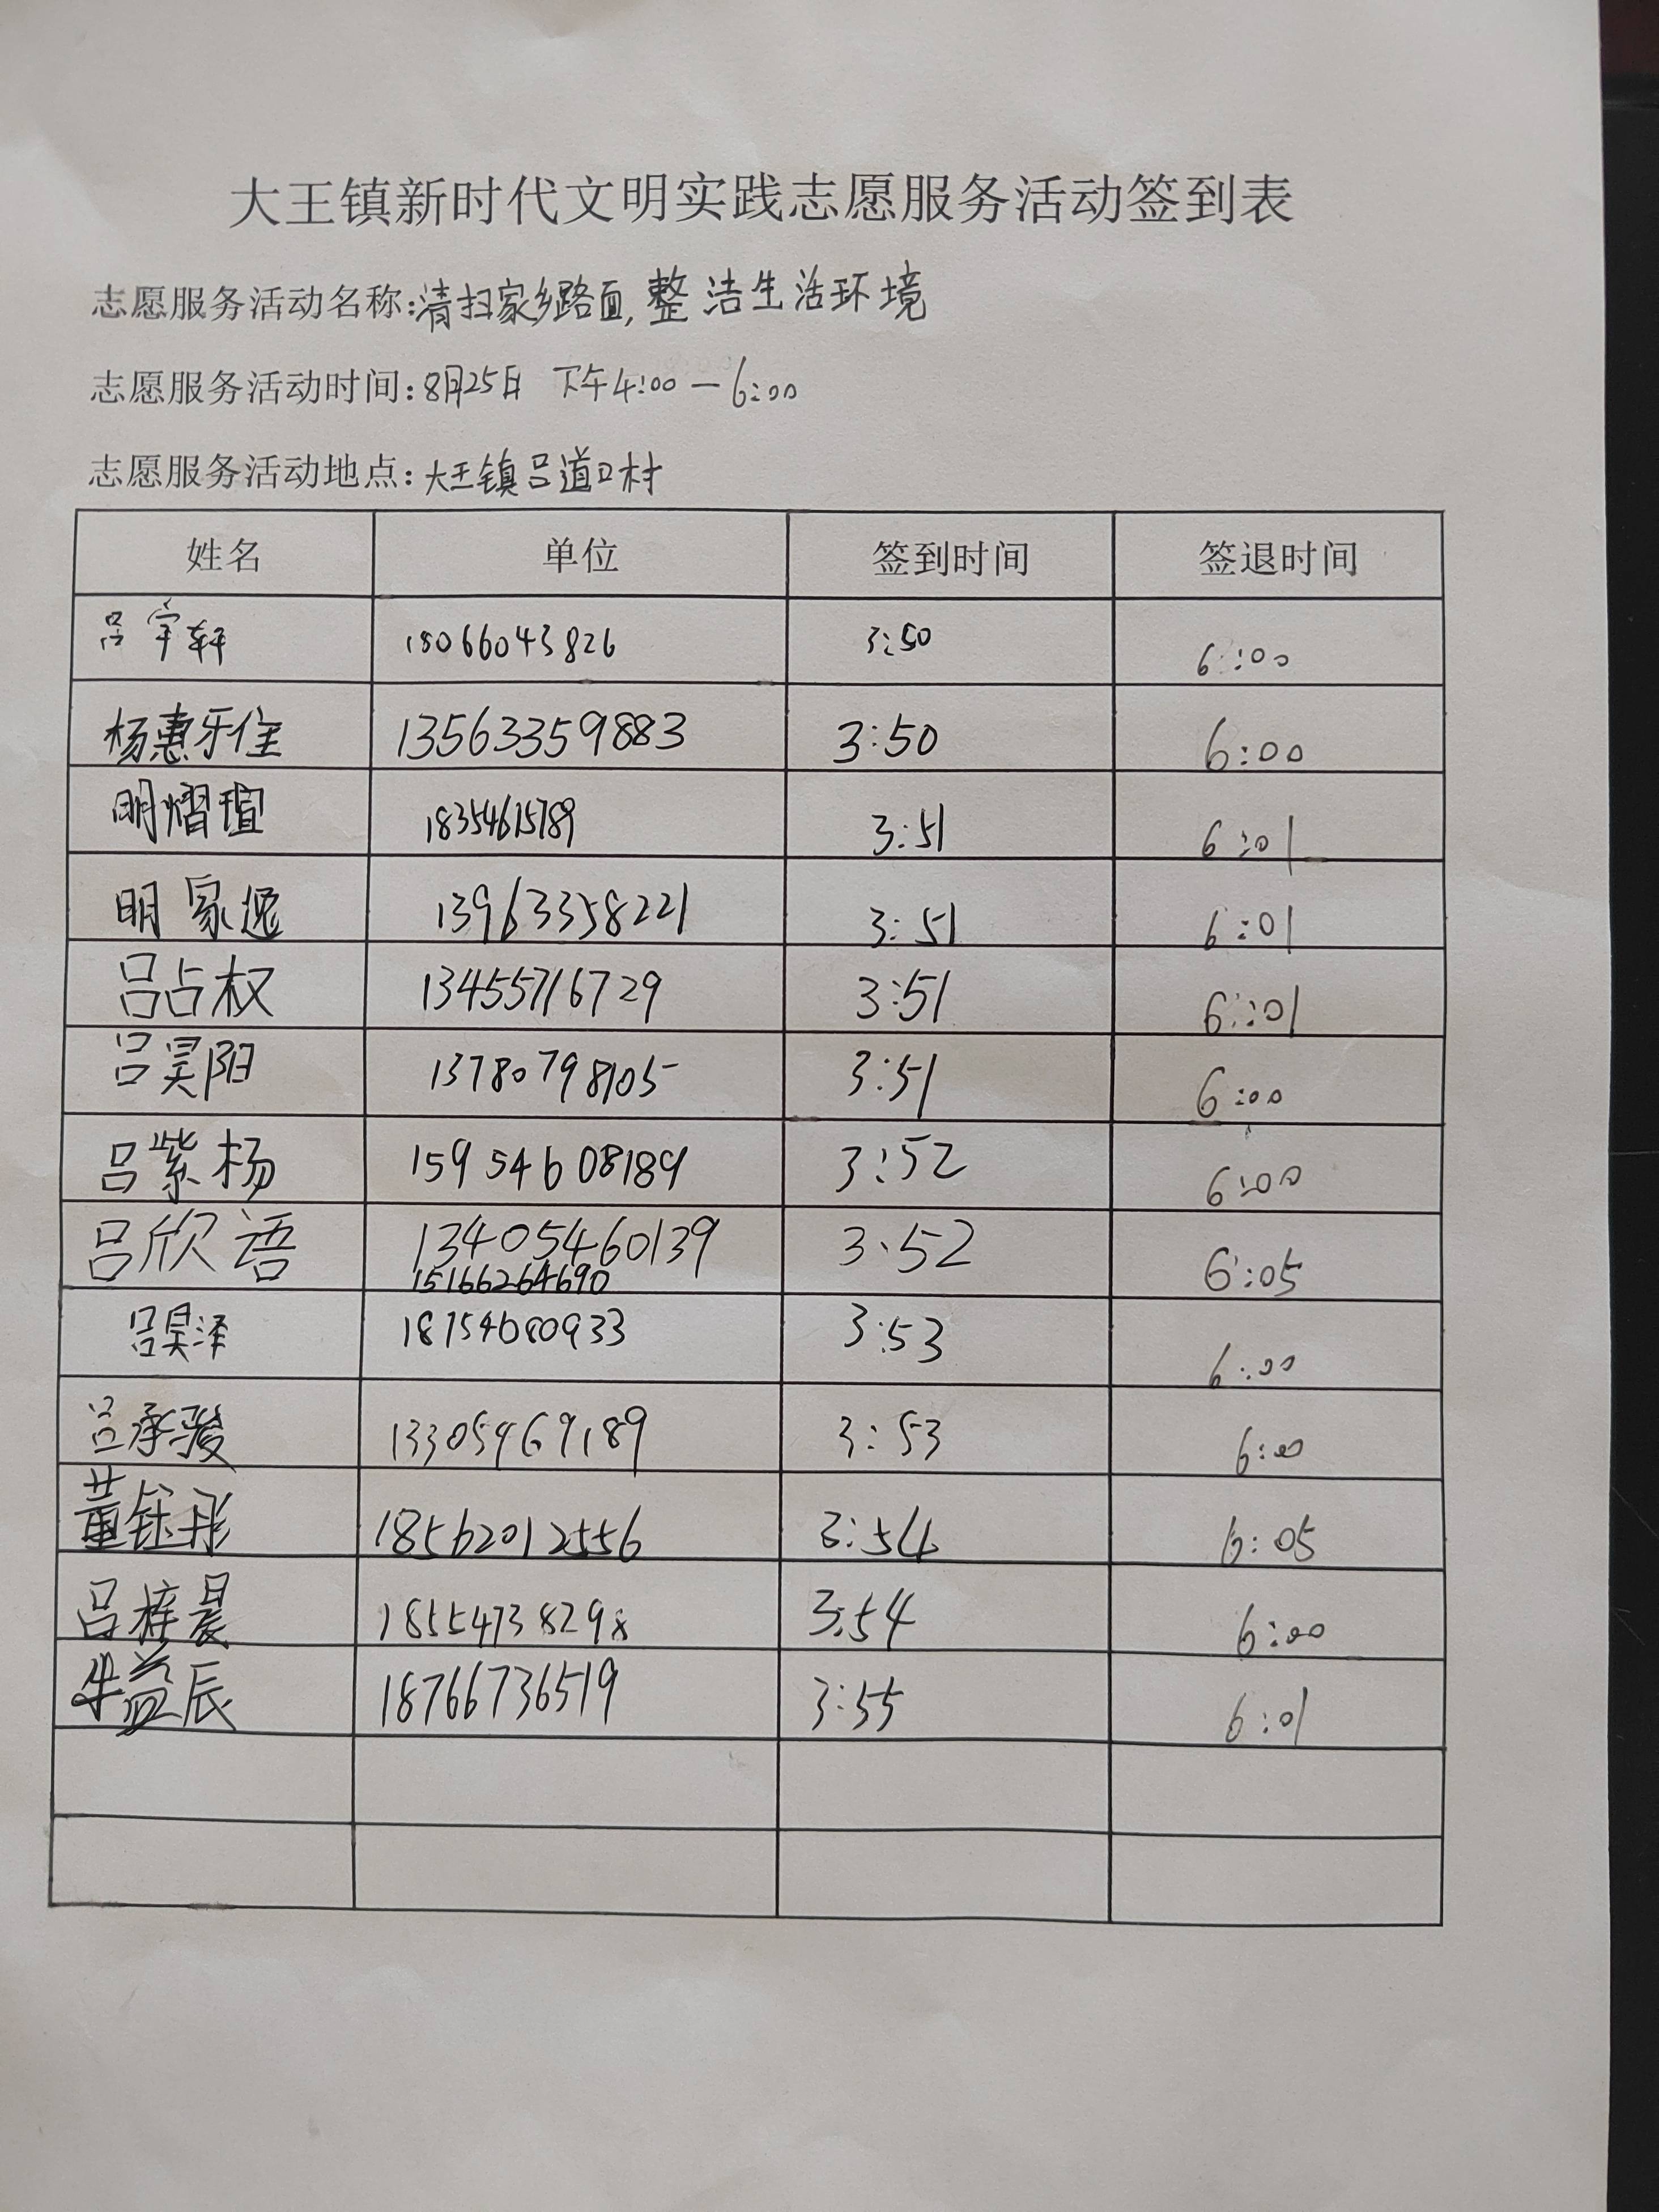 大王镇新时代文明实践志愿服务活动签到表
志愿服务活动名称:清扫家乡路面,整洁生活环境
志愿服务活动时间:8月25日 下午4:00—6:00
志愿服务活动地点:大王镇吕道口村
姓名 单位 签到时间 签退时间
吕宇轩 18066043826 3:50 6:00
杨惠乐佳 13563359883 3:50 6:00
明熠瑄 18354615789 3:51 6:01
明家逸 13963358221 3:51 6:01
吕占权 13455716729 3:51 6:01
吕昊阳 13780798105 3:51 6:00
吕紫杨 15954608189 3:52 6:00
吕欣语 13405460139 3:52 6:05
15166264690
吕昊泽 18754680933 3:53 6:00
吕承骏 13305469189 3:53 6:00
董钰彤 18562012556 3:54 6:05
吕梓晨 18554738298 3:54 6:00
牛益辰 18766736519 3:55 6:01